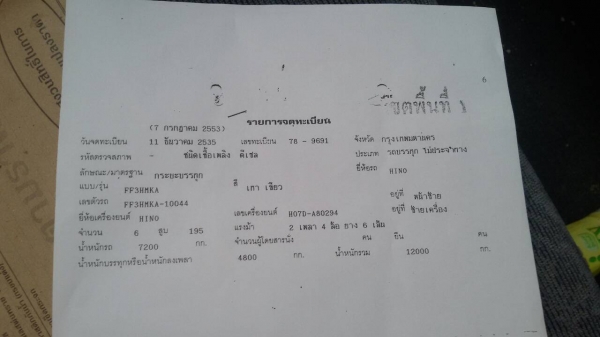 เขตพื้นที่ 1
รายการจดทะเบียน
(7 กรกฎาคม 2553)
วันจดทะเบียน 11 ธันวาคม 2535 เลขทะเบียน 78 - 9691 จังหวัด กรุงเทพมหานคร
รหัสตรวจสภาพ - ชนิดเชื้อเพลิง ดีเซล ประเภท รถบรรทุก ไม่ประจำทาง
ลักษณะ/มาตรฐาน กระบะบรรทุก ยี่ห้อรถ HINO
แบบ/รุ่น FF3HMKA สี เทา เขียว
เลขตัวรถ FF3HMKA-10044 อยู่ที่ หน้าซ้าย
ยี่ห้อเครื่องยนต์ HINO เลขเครื่องยนต์ H07D-A80294 อยู่ที่ ซ้ายเครื่อง
จำนวน 6 สูบ 195 แรงม้า 2 เพลา 4 ล้อ ยาง 6 เส้น
น้ำหนักรถ 7200 กก. จำนวนผู้โดยสารนั่ง คน ยืน คน
น้ำหนักบรรทุกหรือน้ำหนักลงเพลา 4800 กก. น้ำหนักรวม 12000 กก.